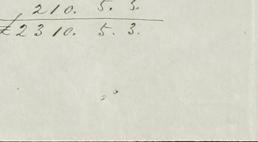 210. 5. 3.
£2310. 5. 3.